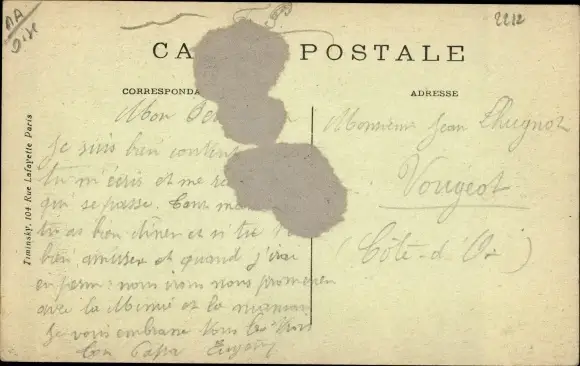 AA
2212
CA POSTALE
CORRESPONDA
ADRESSE
Mon
Je suis bien content
tu m'écris et me
qui se passe. Tout
tu as bien dîner et si tu
bien amuser et quand j'irai
en perm: nous irons nous promener
avec la Mimie et la maman
Je vous embrasse tous les trois
ton Papa Eugène
Monsieur Jean Lhuguot
Vougeot
(Côte-d'Or)
Timinsky, 104 Rue Lafayette Paris